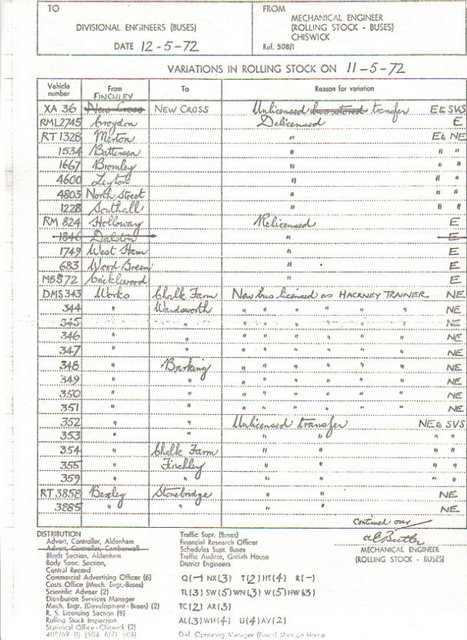 TO
DIVISIONAL ENGINEERS (BUSES)
DATE 12-5-72
FROM
MECHANICAL ENGINEER
(ROLLING STOCK - BUSES)
CHISWICK
Ref. 508/1
VARIATIONS IN ROLLING STOCK ON 11-5-72
Vehicle number From To Reason for variation
FINCHLEY
XA 36 New Cross NEW CROSS Unlicensed transfer E & SVS
RML2745 Croydon Delicensed E
RT 1328 Merton " E & NE
1534 Battersea " " "
1667 Bromley " " "
4600 Leyton " " "
4803 North Street " " "
1228 Southall " " "
RM 824 Holloway Relicensed E
1846 Dalston " E
1749 West Ham " E
683 Wood Green " E
MBS72 Cricklewood " E
DMS343 Works Chalk Farm New bus licensed as HACKNEY TRAINER NE
344 " Wandsworth " " " " " " NE
345 " " " " " " " " NE
346 " " " " " " " " NE
347 " " " " " " " " NE
348 " Barking " " " " " " NE
349 " " " " " " " " NE
350 " " " " " " " " NE
351 " " " " " " " " NE
352 " " Unlicensed transfer NE & SVS
353 " " " " " "
354 " Chalk Farm " " " "
355 " Finchley " " " "
359 " " " " " "
RT 3858 Bexley Stonebridge " " NE
3885 " " " " NE
Continued over
MECHANICAL ENGINEER
(ROLLING STOCK - BUSES)
DISTRIBUTION
Advert. Controller, Aldenham
Advert. Controller, Camberwell
Blinds Section, Aldenham
Body Spec. Section,
Central Record
Commercial Advertising Officer (6)
Costs Office (Mech. Engr.-Buses)
Scientific Adviser (2)
Distribution Services Manager
Mech. Engr. (Development - Buses) (2)
R. S. Licensing Section (6)
Rolling Stock Inspection
Statistical Office - Chiswick (2)
Traffic Supt. (Buses)
Financial Research Officer
Schedules Supt. Buses
Traffic Auditor, Griffith House
District Engineers
Q(-) NX(3) T(2) HT(4) R(-)
TL(3) SW(5) WN(3) W(5) HW(3)
TC(2) AR(3)
AL(3) WH(4) U(4) AV(2)